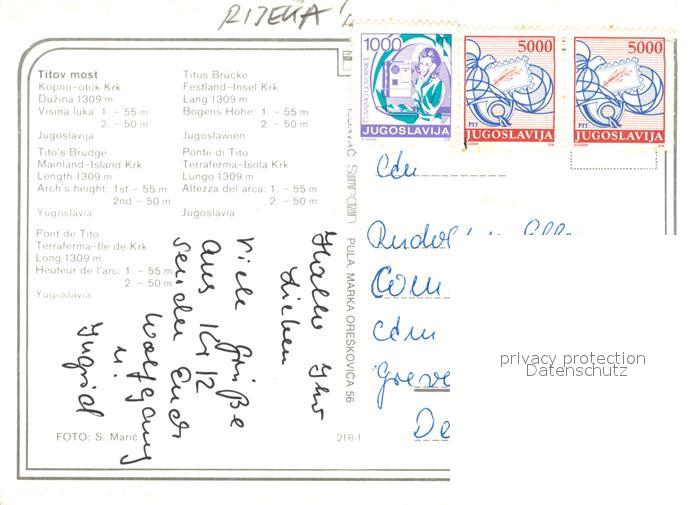 RIJEKA
1000
JUGOSLAVIJA
5000
PTT
JUGOSLAVIJA
5000
PTT
JUGOSLAVIJA
Titov most
Kopno-otok Krk
Dužina 1309 m
Visina luka: 1. - 55 m
2. - 50 m
Jugoslavija
Titos Brücke
Festland-Insel Krk
Lang 1309 m
Bogens Höhe: 1. - 55 m
2. - 50 m
Jugoslawien
Tito's Brudge
Mainland-Island Krk
Length 1309 m
Arch's height: 1st - 55 m
2nd - 50 m
Yugoslavia
Ponte di Tito
Terraferma-Isola Krk
Lungo 1309 m
Altezza del arca: 1. - 55 m
2. - 50 m
Jugoslavia
Pont de Tito
Terraferma-Ile de Krk
Long 1309 m
Heuteur de l'arc: 1. - 55 m
2. - 50 m
Yugoslavia
FOTO: S. Marić
218-1
PULA, MARKA OREŠKOVIĆA 56
Hallo Ihr
Lieben
Viele Grüße
aus Krk
senden Euch
Wolfgang
u.
Ingrid
privacy protection
Datenschutz